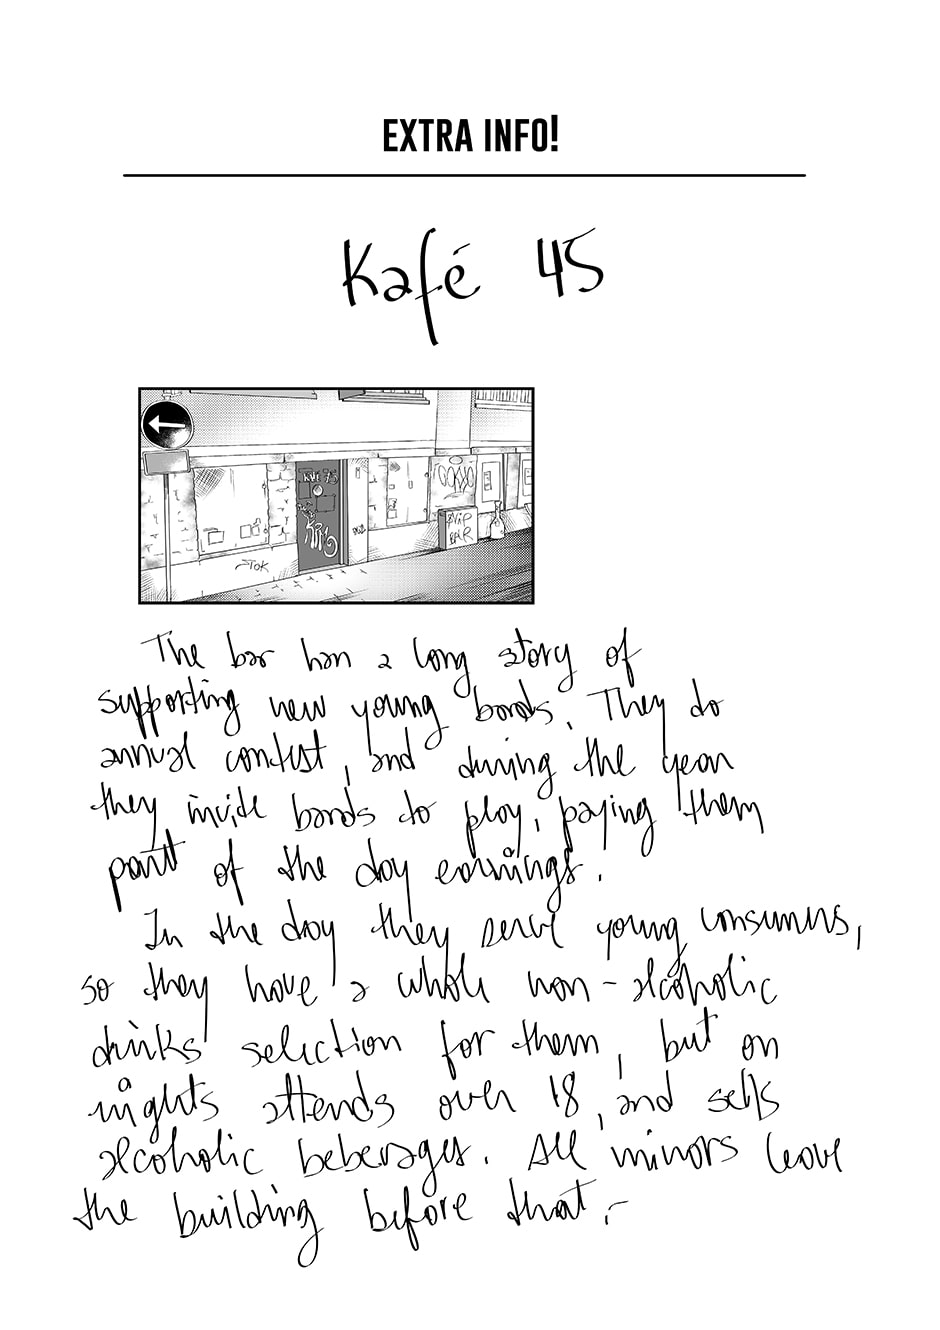 EXTRA INFO!
Kafé 45
TOK
BAR
The bar has a long story of
supporting new young bands. They do
annual contest, and during the year
they invite bands to play, paying them
part of the day earnings.
In the day they serve young consumers,
so they have a whole non-alcoholic
drinks selection for them, but on
nights attends over 18, and sells
alcoholic beberages. All minors leave
the building before that.-